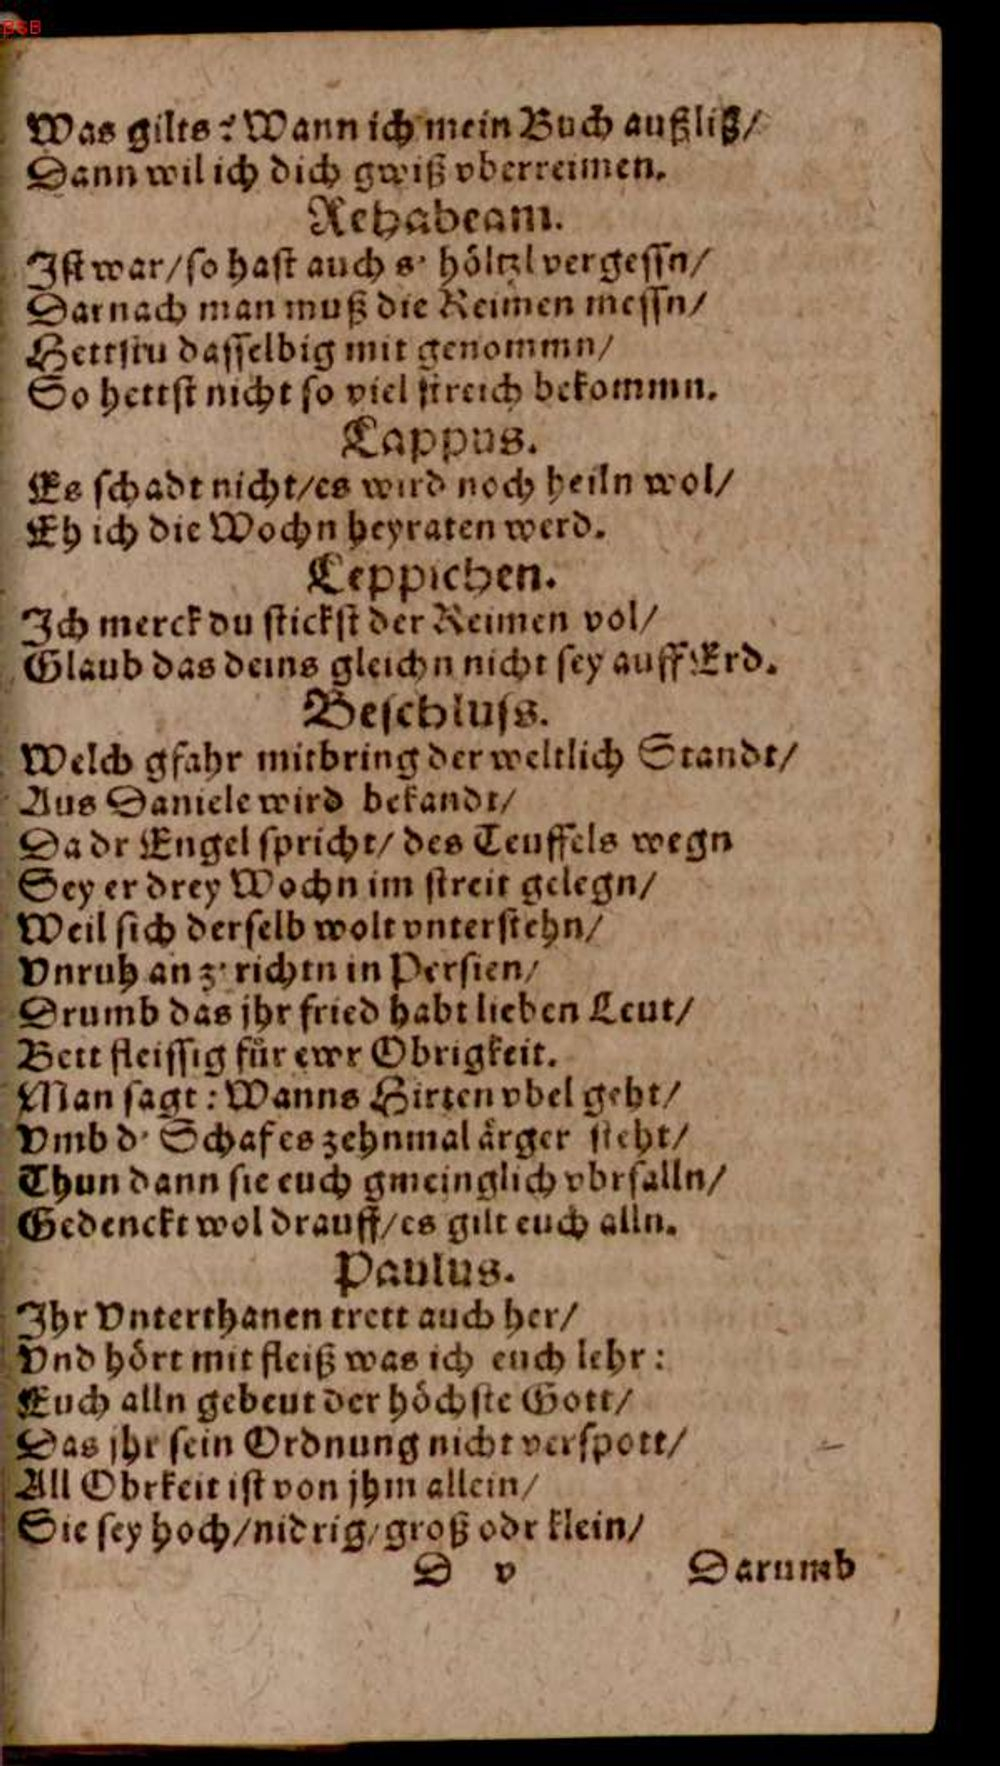 BSB
Was gilts? Wann ich mein Buch außliß/
Dann wil ich dich gwiß vberreimen.
Rehabeam.
Ist war/so hast auch s' höltzl vergessn/
Darnach man muß die Reimen messn/
Hettstu dasselbig mit genommn/
So hettst nicht so viel streich bekommn.
Lappus.
Es schadt nicht/es wird noch heiln wol/
Eh ich die Wochn heyraten werd.
Leppichen.
Ich merck du stickst der Reimen vol/
Glaub das deins gleichn nicht sey auff Erd.
Beschluss.
Welch gfahr mitbring der weltlich Standt/
Aus Daniele wird bekandt/
Da dr Engel spricht/ des Teuffels wegn
Sey er drey Wochn im streit gelegn/
Weil sich derselb wolt vnterstehn/
Vnruh an z' richtn in Persien/
Drumb das jhr fried habt lieben Leut/
Bett fleissig für ewr Obrigkeit.
Man sagt: Wanns Hirten vbel geht/
Vmb d' Schaf es zehnmal ärger steht/
Thun dann sie euch gmeinglich vbrfalln/
Gedenckt wol drauff/es gilt euch alln.
Paulus.
Ihr Vnterthanen trett auch her/
Vnd hört mit fleiß was ich euch lehr:
Euch alln gebeut der höchste Gott/
Das jhr sein Ordnung nicht verspott/
All Obrkeit ist von jhm allein/
Sie sey hoch/nidrig/groß odr klein/
D v Darumb